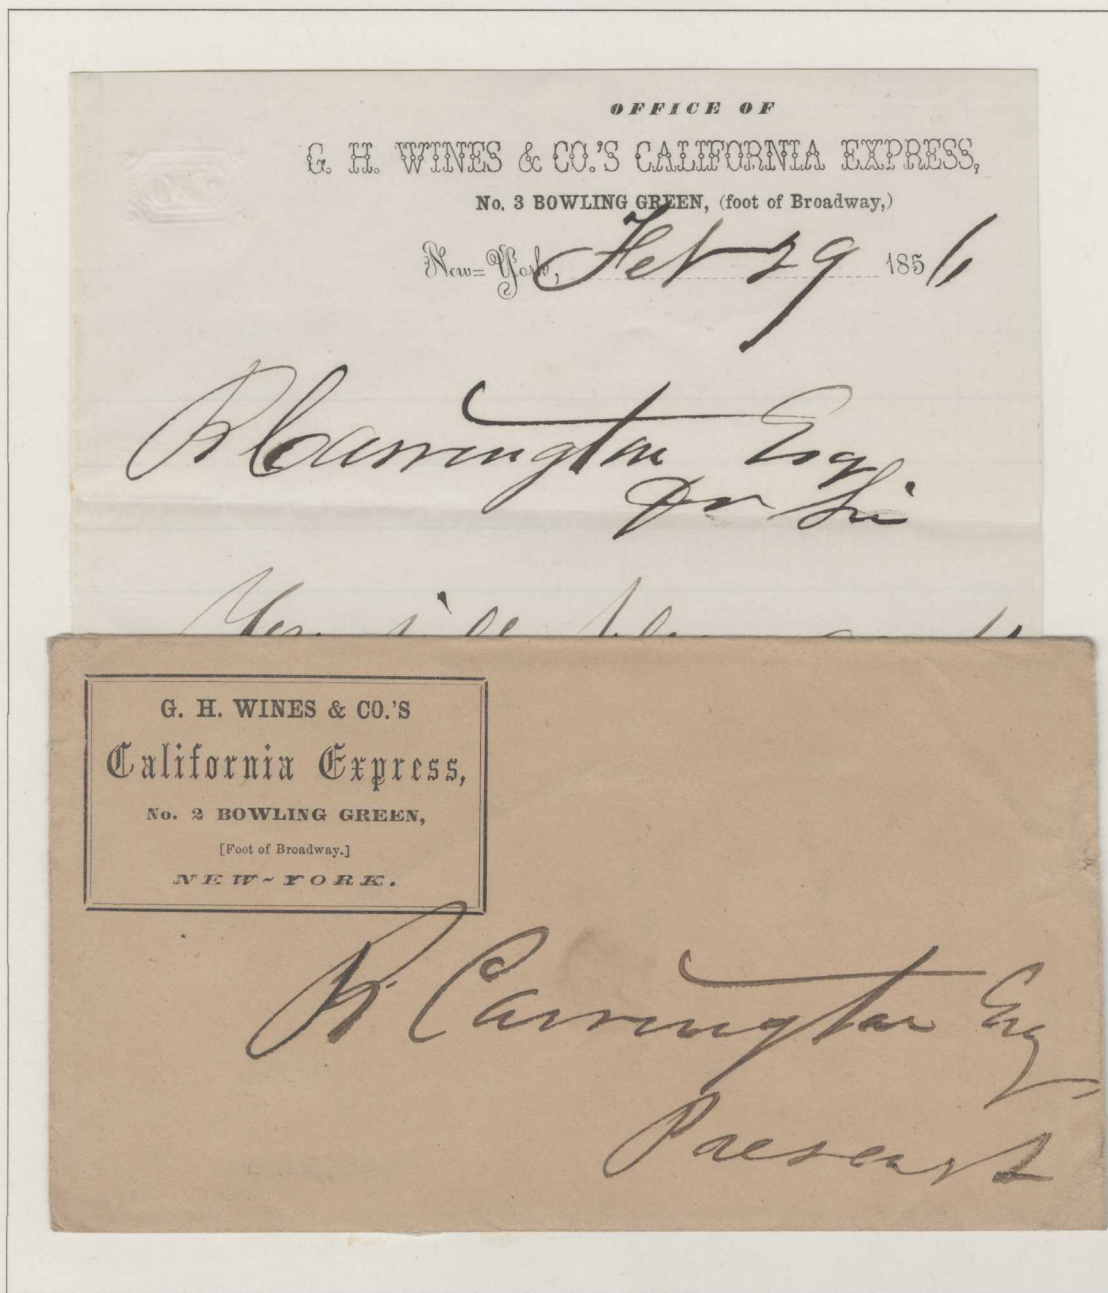 OFFICE OF
G. H. WINES & CO.'S CALIFORNIA EXPRESS,
No. 3 BOWLING GREEN, (foot of Broadway,)
New=York, Feb 29 1856
R Carrington Esq
Dr Sir
You will please
G. H. WINES & CO.'S
California Express,
No. 2 BOWLING GREEN,
[Foot of Broadway.]
NEW-YORK.
R Carrington Esq
Present